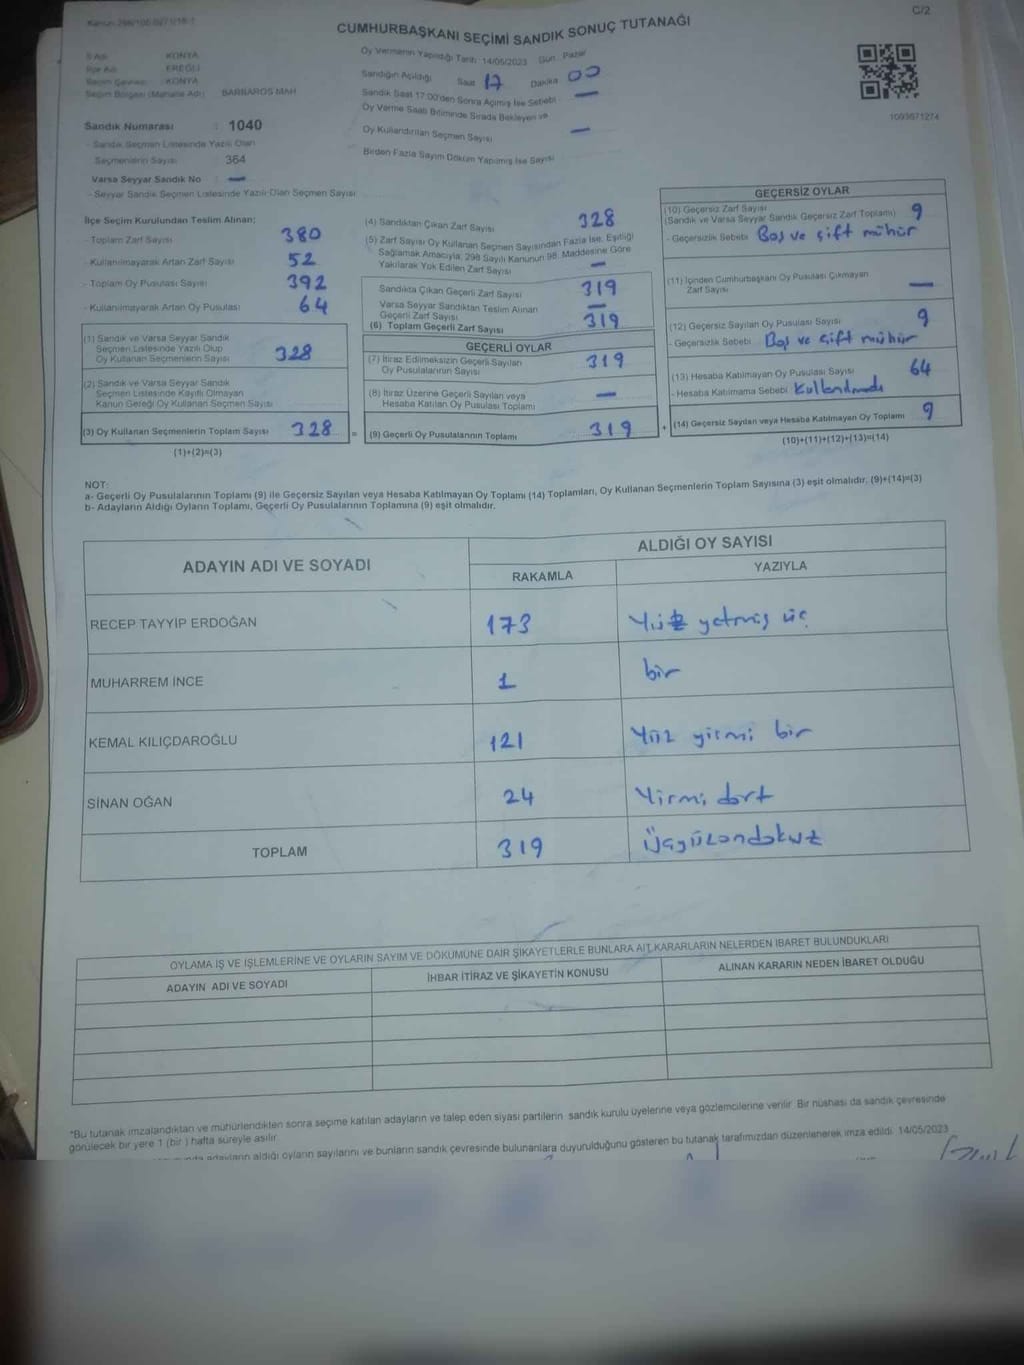 C/2
CUMHURBAŞKANI SEÇİMİ SANDIK SONUÇ TUTANAĞI
İl Adı : KONYA
İlçe Adı : EREĞLİ
Seçim Çevresi : KONYA
Seçim Bölgesi (Mahalle Adı) : BARBAROS MAH
Sandık Numarası : 1040
- Sandık Seçmen Listesinde Yazılı Olan
Seçmenlerin Sayısı 364
Varsa Seyyar Sandık No : —
- Seyyar Sandık Seçmen Listesinde Yazılı Olan Seçmen Sayısı
Oy Vermenin Yapıldığı Tarih 14/05/2023 Gün : Pazar
Sandığın Açıldığı Saat 17 Dakika 00
Sandık Saat 17:00'den Sonra Açılmış İse Sebebi : —
Oy Verme Saati Bitiminde Sırada Bekleyen ve
Oy Kullandırılan Seçmen Sayısı —
Birden Fazla Sayım Döküm Yapılmış İse Sayısı
1093871274
İlçe Seçim Kurulundan Teslim Alınan;
- Toplam Zarf Sayısı 380
- Kullanılmayarak Artan Zarf Sayısı 52
- Toplam Oy Pusulası Sayısı 392
- Kullanılmayarak Artan Oy Pusulası 64
(1) Sandık ve Varsa Seyyar Sandık
Seçmen Listesinde Yazılı Olup
Oy Kullanan Seçmenlerin Sayısı 328
(2) Sandık ve Varsa Seyyar Sandık
Seçmen Listesinde Kayıtlı Olmayan
Kanun Gereği Oy Kullanan Seçmen Sayısı
(3) Oy Kullanan Seçmenlerin Toplam Sayısı 328 =
(1)+(2)=(3)
(4) Sandıktan Çıkan Zarf Sayısı 328
(5) Zarf Sayısı Oy Kullanan Seçmen Sayısından Fazla İse, Eşitliği
Sağlamak Amacıyla, 298 Sayılı Kanunun 98. Maddesine Göre
Yakılarak Yok Edilen Zarf Sayısı —
Sandıkta Çıkan Geçerli Zarf Sayısı 319
Varsa Seyyar Sandıktan Teslim Alınan
Geçerli Zarf Sayısı —
(6) Toplam Geçerli Zarf Sayısı 319
GEÇERLİ OYLAR
(7) İtiraz Edilmeksizin Geçerli Sayılan
Oy Pusulalarının Sayısı 319
(8) İtiraz Üzerine Geçerli Sayılan veya
Hesaba Katılan Oy Pusulası Toplamı —
(9) Geçerli Oy Pusulalarının Toplamı 319 +
GEÇERSİZ OYLAR
(10) Geçersiz Zarf Sayısı
(Sandık ve Varsa Seyyar Sandık Geçersiz Zarf Toplamı) 9
- Geçersizlik Sebebi Boş ve çift mühür
(11) İçinden Cumhurbaşkanı Oy Pusulası Çıkmayan
Zarf Sayısı —
(12) Geçersiz Sayılan Oy Pusulası Sayısı 9
- Geçersizlik Sebebi Boş ve çift mühür
(13) Hesaba Katılmayan Oy Pusulası Sayısı 64
- Hesaba Katılmama Sebebi Kullanılmadı
(14) Geçersiz Sayılan veya Hesaba Katılmayan Oy Toplamı 9
(10)+(11)+(12)+(13)=(14)
NOT:
a- Geçerli Oy Pusulalarının Toplamı (9) ile Geçersiz Sayılan veya Hesaba Katılmayan Oy Toplamı (14) Toplamları, Oy Kullanan Seçmenlerin Toplam Sayısına (3) eşit olmalıdır. (9)+(14)=(3)
b- Adayların Aldığı Oyların Toplamı, Geçerli Oy Pusulalarının Toplamına (9) eşit olmalıdır.
ADAYIN ADI VE SOYADI ALDIĞI OY SAYISI
RAKAMLA YAZIYLA
RECEP TAYYİP ERDOĞAN 173 Yüz yetmiş üç
MUHARREM İNCE 1 bir
KEMAL KILIÇDAROĞLU 121 Yüz yirmi bir
SİNAN OĞAN 24 Yirmi dört
TOPLAM 319 Üçyüzondokuz
OYLAMA İŞ VE İŞLEMLERİNE VE OYLARIN SAYIM VE DÖKÜMÜNE DAİR ŞİKAYETLERLE BUNLARA AİT KARARLARIN NELERDEN İBARET BULUNDUKLARI
ADAYIN ADI VE SOYADI İHBAR İTİRAZ VE ŞİKAYETİN KONUSU ALINAN KARARIN NEDEN İBARET OLDUĞU
*Bu tutanak imzalandıktan ve mühürlendikten sonra seçime katılan adayların ve talep eden siyasi partilerin sandık kurulu üyelerine veya gözlemcilerine verilir. Bir nüshası da sandık çevresinde
görülecek bir yere 1 (bir) hafta süreyle asılır.
adayların aldığı oyların sayılarını ve bunların sandık çevresinde bulunanlara duyurulduğunu gösteren bu tutanak tarafımızdan düzenlenerek imza edildi. 14/05/2023